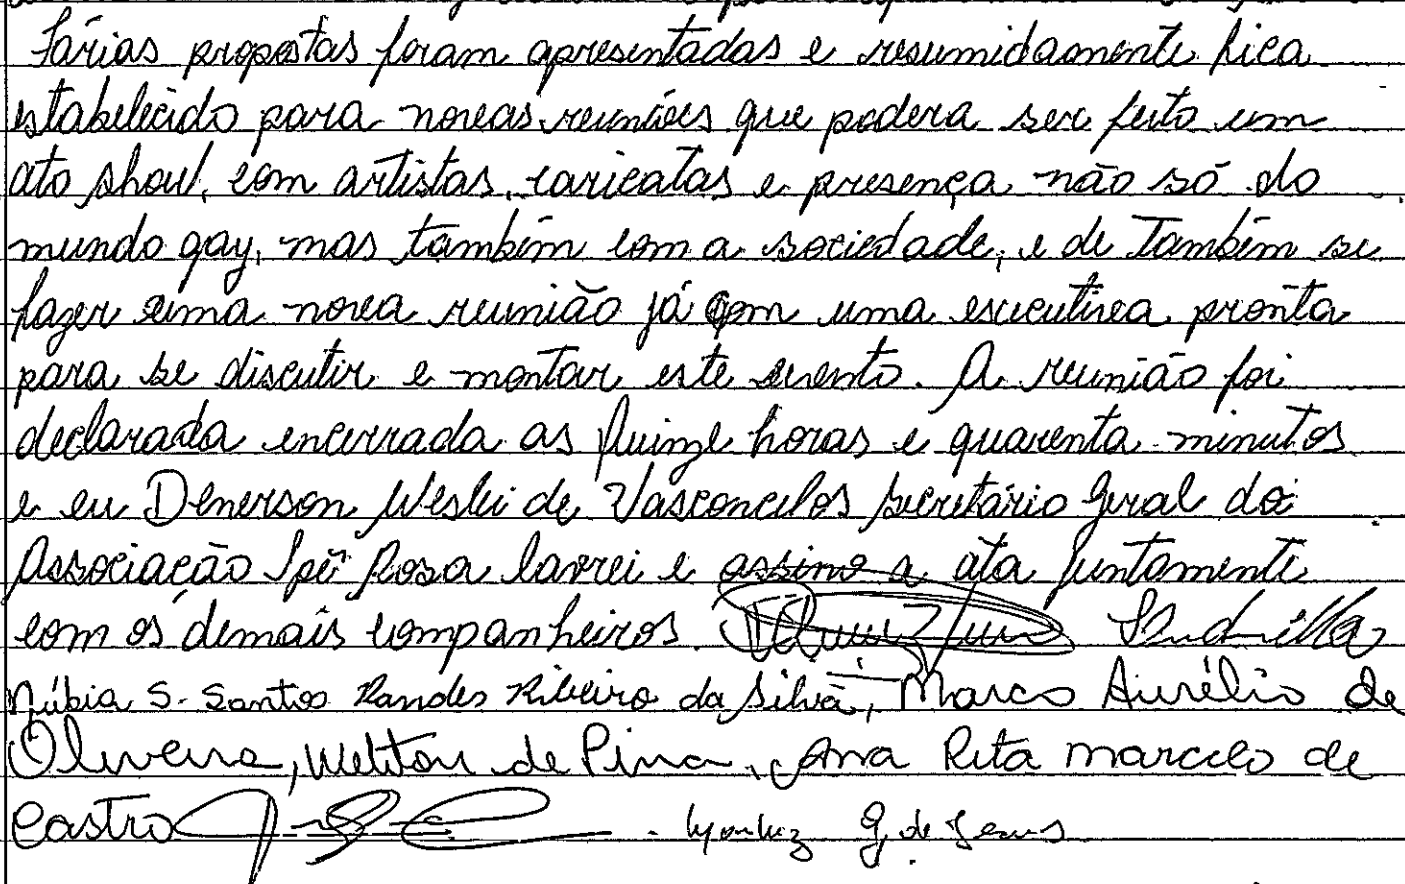 Várias propostas foram apresentadas e resumidamente fica
estabelecido para novas reuniões que podera ser feito um
ato show, com artistas, caricatas e presença não só do
mundo gay, mas também com a sociedade, e de também se
fazer uma nova reunião já com uma executiva pronta
para se discutir e montar este evento. A reunião foi
declarada encerrada as quinze horas e quarenta minutos
e eu Denerson Weslei de Vasconcelos secretário geral da
Associação Ipê Rosa lavrei e assino a ata juntamente
com os demais companheiros. Ludmilla
Núbia S. Santos Randes Ribeiro da Silva, Marco Aurélio de
Oliveira, Weliton de Pina, Ana Rita marcelo de
Castro G. de Jesus